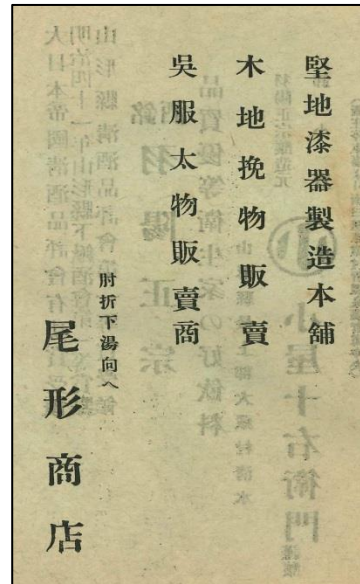 堅地漆器製造本舗
木地挽物販賣
呉服太物販賣商
肘折下湯向へ
尾形商店